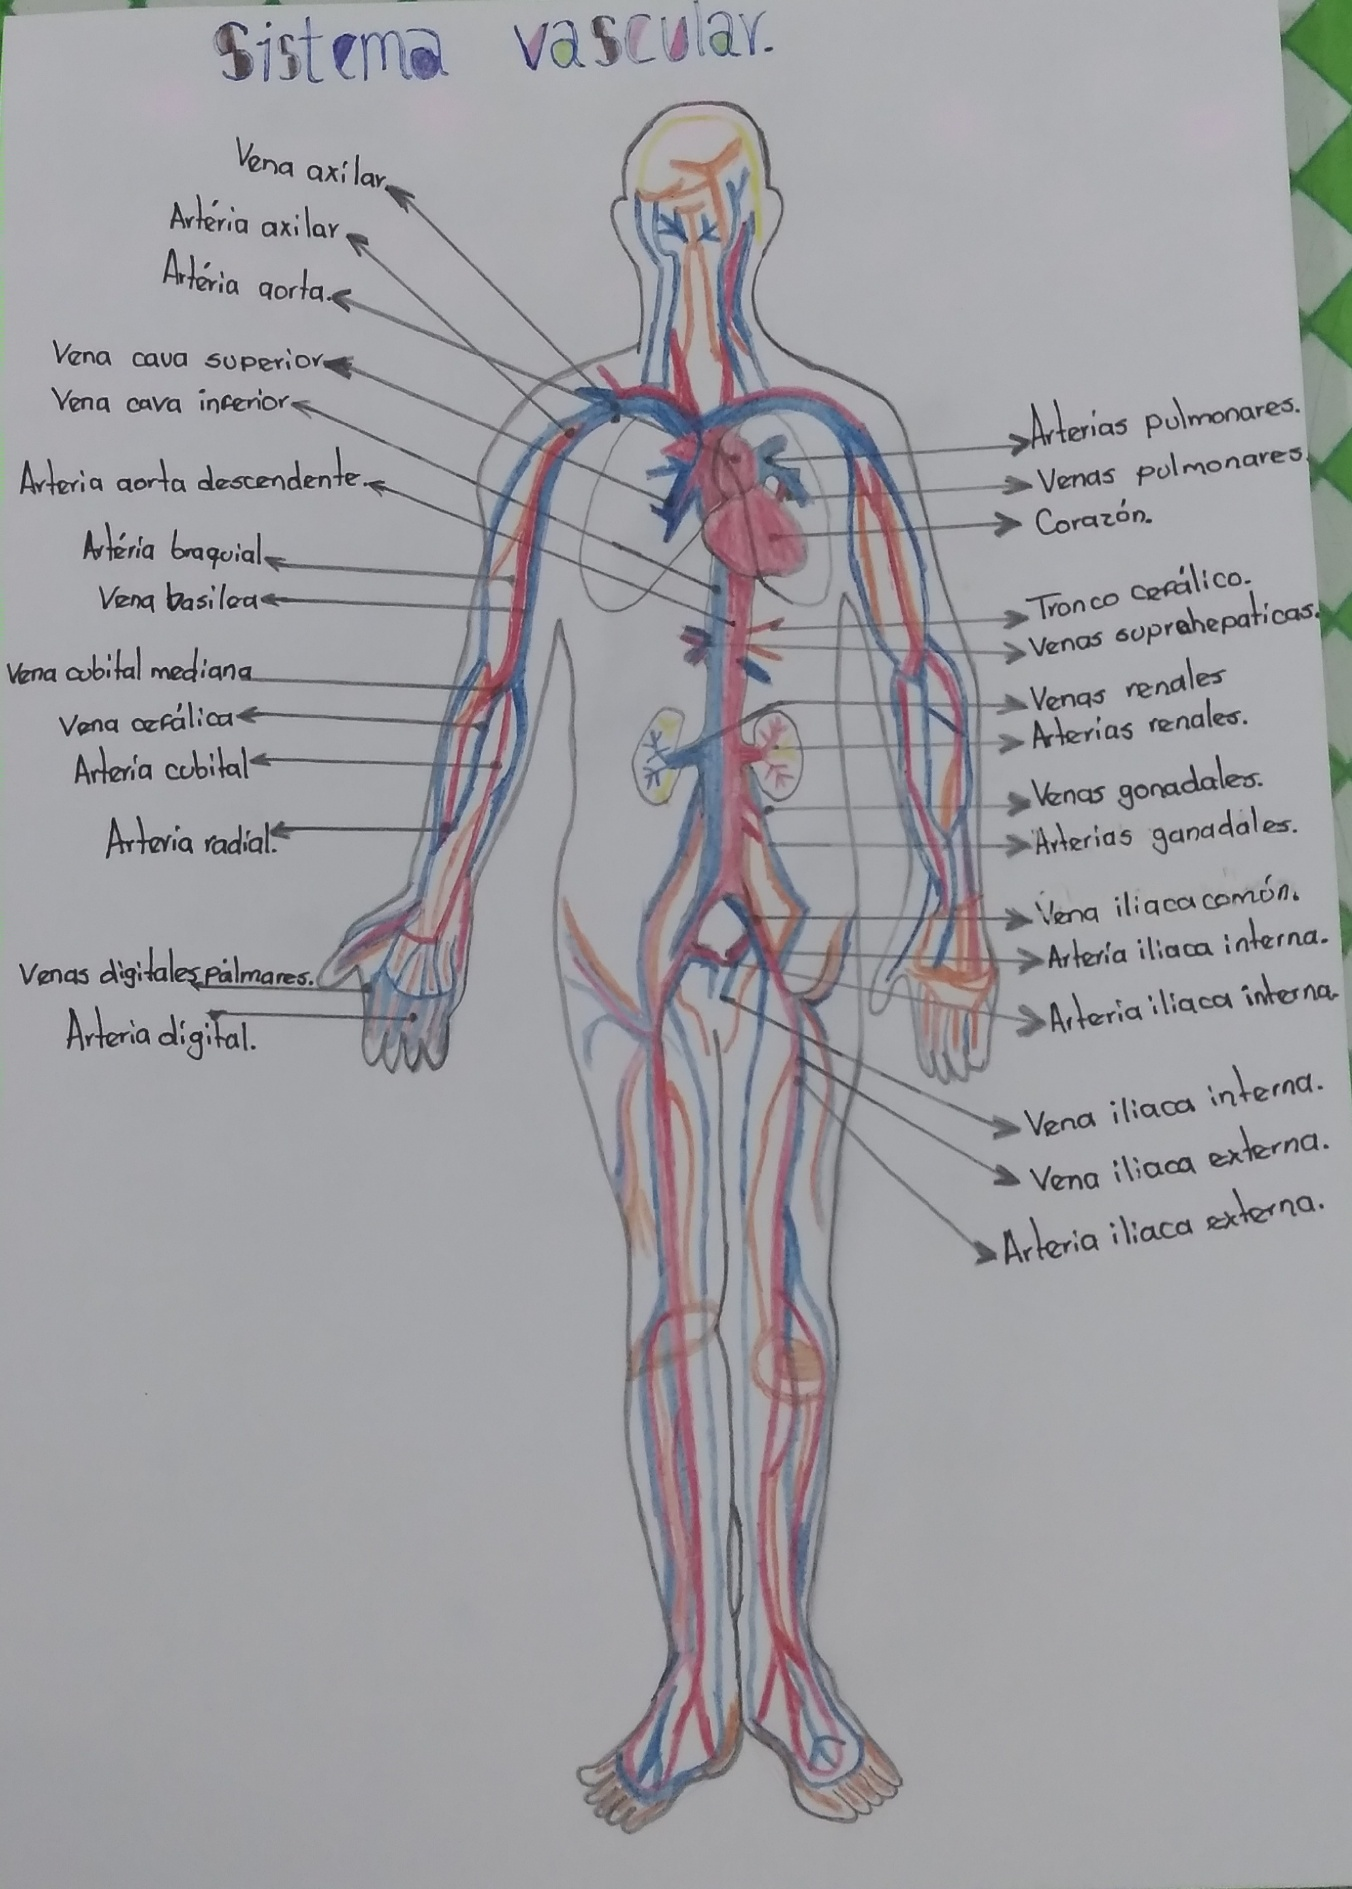 Sistema vascular.
Vena axílar
Artéria axilar
Artéria aorta.
Vena cava superior
Vena cava inferior
Arteria aorta descendente.
Artéria braquial
Vena basilea
Vena cubital mediana
Vena cefálica
Arteria cubital
Arteria radial.
Venas digitales pálmares.
Arteria digital.
Arterias pulmonares.
Venas pulmonares.
Corazón.
Tronco cefálico.
Venas suprahepaticas.
Venas renales
Arterias renales.
Venas gonadales.
Arterias ganadales.
Vena iliaca común.
Arteria iliaca interna.
Arteria iliaca interna.
Vena iliaca interna.
Vena iliaca externa.
Arteria iliaca externa.